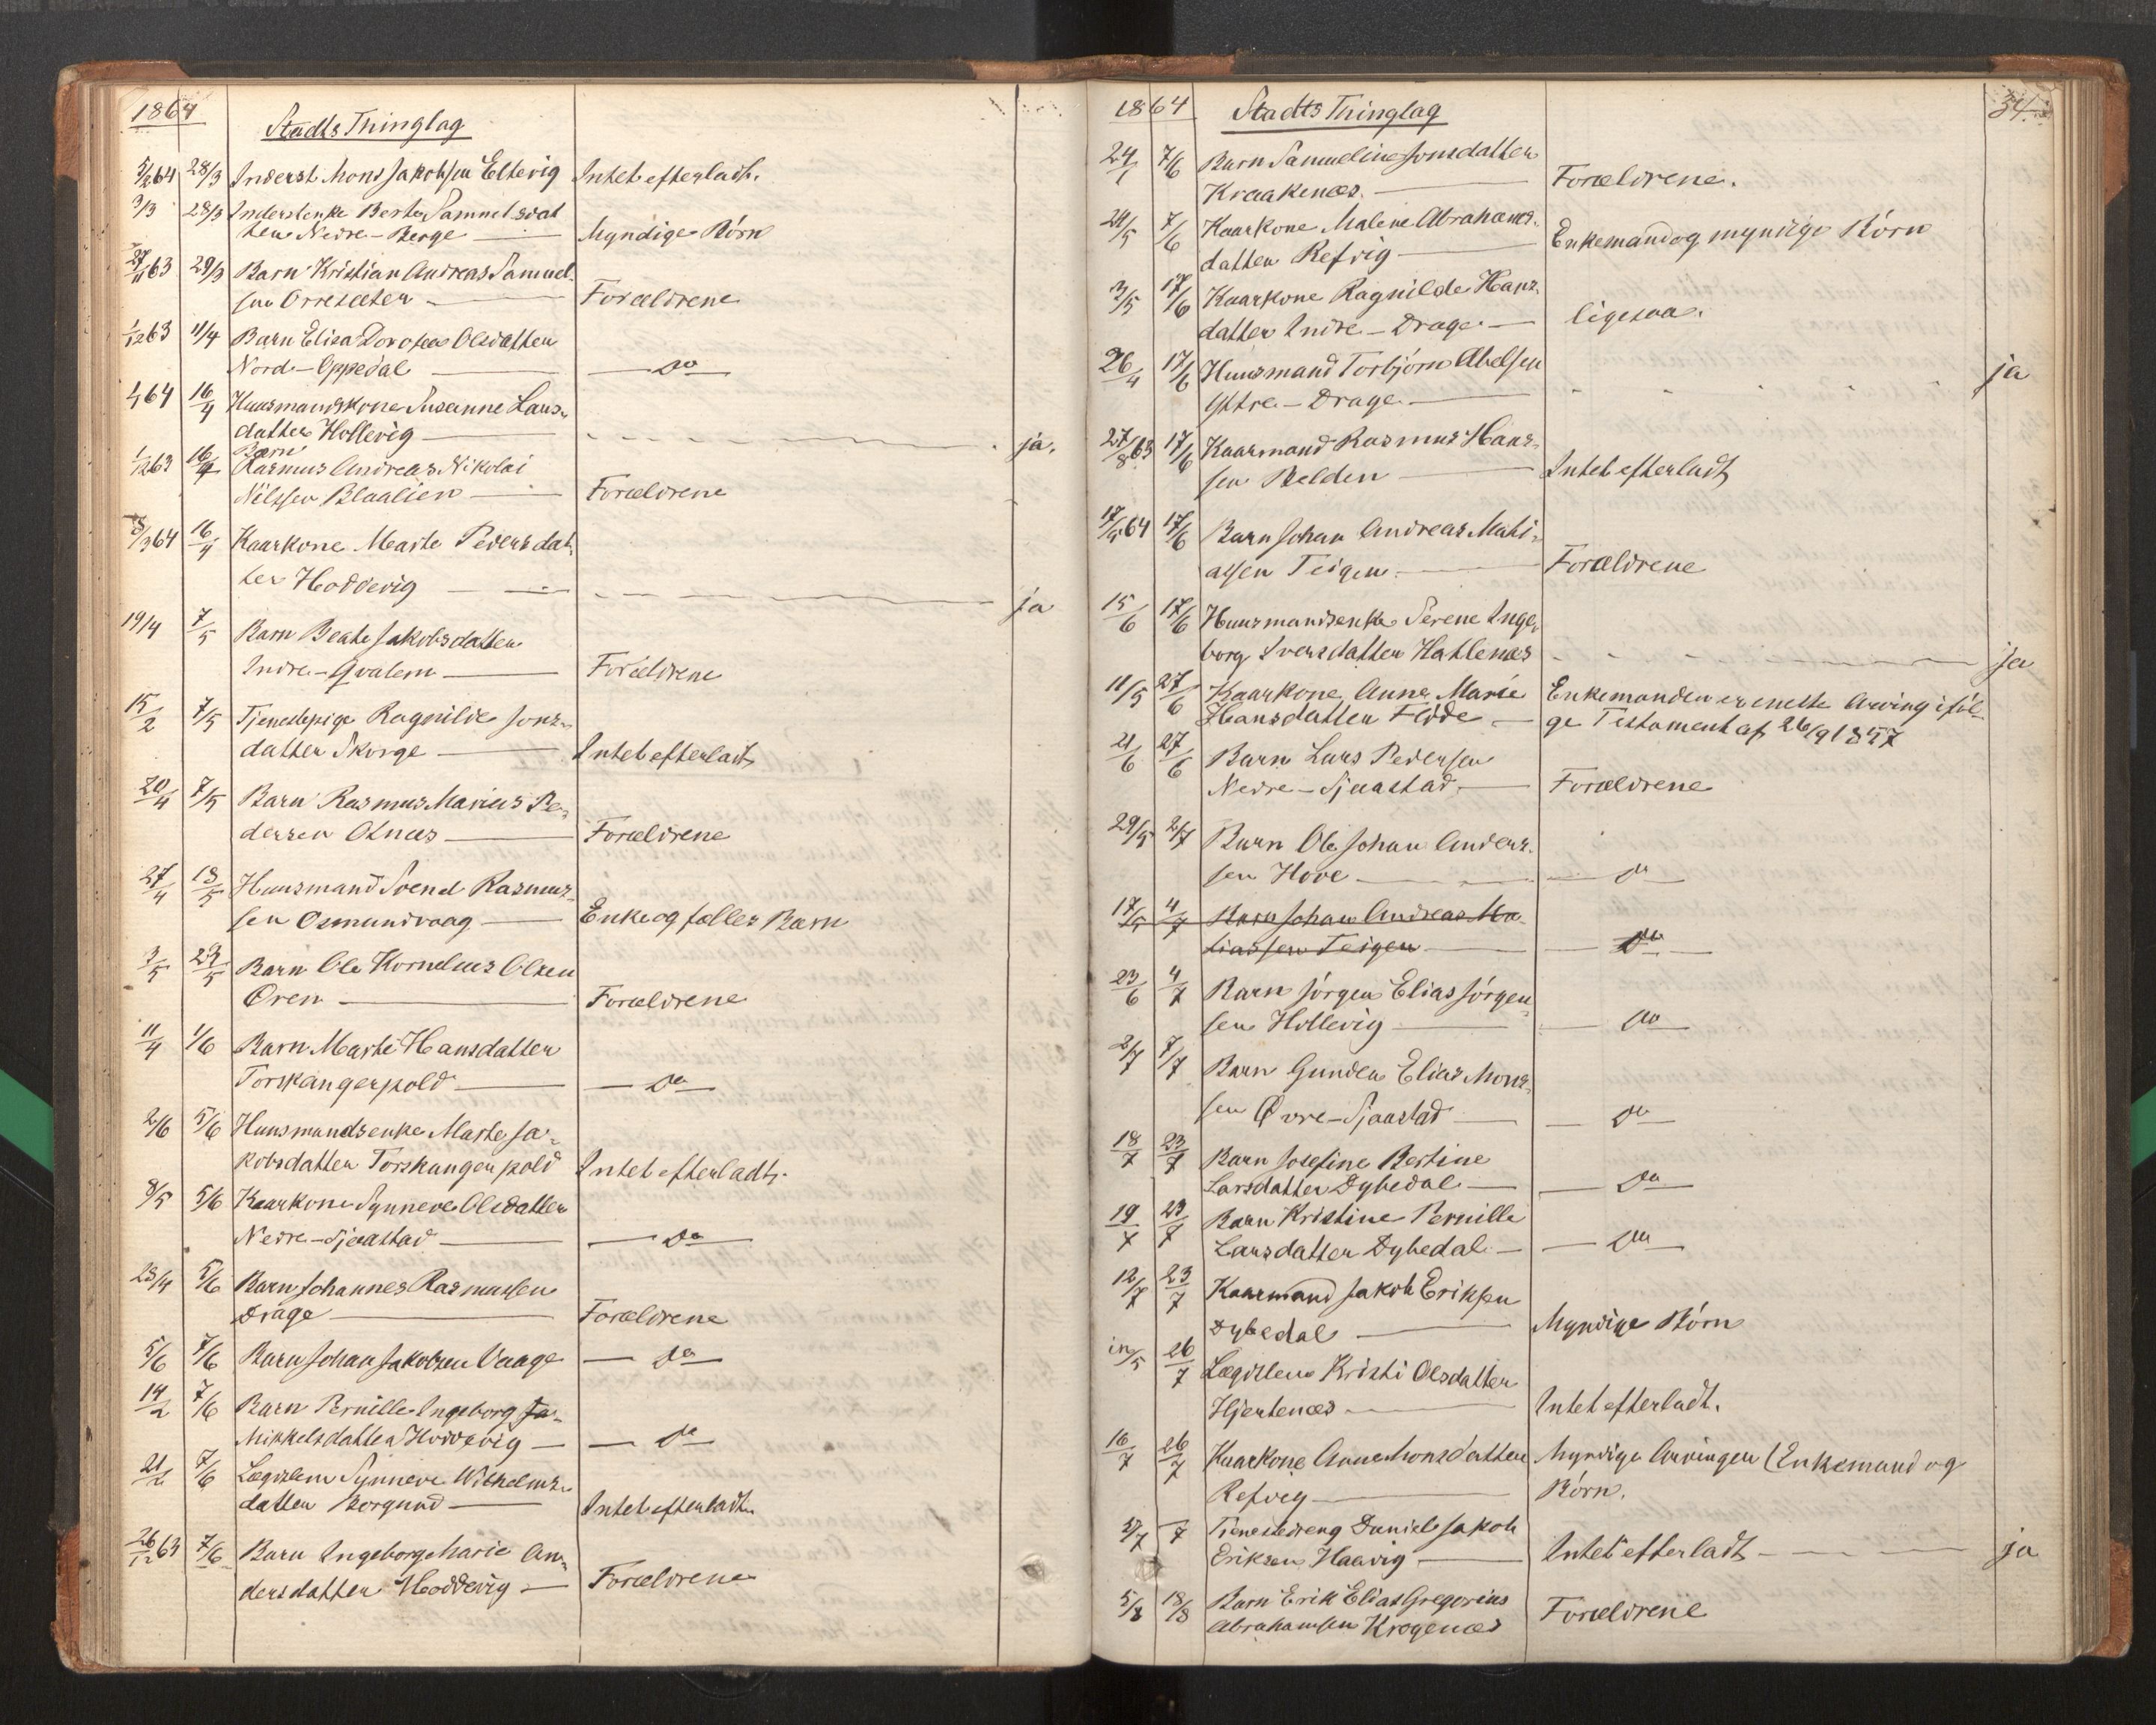 1864
Stadts Thinglag
5/2 64 28/3 Inderst Mons Jakobsen Eltevig Intet efterladt.
9/3 28/3 Inderstenke Berte Samuelsdat
ter Nedre-Berge Myndige Børn
27/11 63 29/3 Barn Kristian Andreas Samuel-
sen Orresæter Forældrene
1/12 63 11/4 Barn Elisa Dorothea Olsdatter
Nord-Oppedal Do
64 16/4 Huusmandskone Susanne Lars-
datter Hollevig ja.
Barn
1/12 63 16/4 Rasmus Andreas Nikolai
Nilssen Blaalien Forældrene
8/3 64 16/4 Kaarkone Marte Pedersdat-
ter Hoddevig ja
19/4 7/5 Barn Beate Jakobsdatter
Indre-Qvalem Forældrene
15/2 7/5 Tjenestepige Ragnilde Jons-
datter Skorge Intet efterladt
20/4 7/5 Barn Rasmus Marius Pe-
dersen Osnæs Forældrene
27/4 18/5 Huusmand Svend Rasmus-
sen Osmundvaag Enke og fælles Barn
3/5 29/5 Barn Ole Kornelius Olsen
Øren Forældrene
11/4 1/6 Barn Marte Hansdatter
Torskangerpold Do
2/6 5/6 Huusmandsenke Marte Ja-
kobsdatter Torskangerpold Intet efterladt.
8/5 5/6 Kaarkone Synneve Olsdatter
Nedre-Sjaastad Do
23/4 5/6 Barn Johannes Rasmussen
Drage Forældrene
5/6 7/6 Barn Johan Jakobsen Vaage Do
14/2 7/6 Barn Pernille Ingeborg Ja-
Mikkelsdatter Hoddevig Do
21/2 7/6 Lægdslem Synneve Wilhelms-
datter Borgund Intet efterladt
26/12 63 7/6 Barn Ingeborg Marie An-
dersdatter Hoddevig Forældrene
1864 34.
Stadts Thinglag
24/1 7/6 Barn Samueline Jonsdatter
Kraakenæs. Forældrene.
24/5 7/6 Kaarkone Malene Abrahams-
datter Refvig Enkemand og myndige Børn
3/5 17/6 Kaarkone Ragnilde Hans-
datter Indre-Drage ligesaa.
26/4 17/6 Huusmand Torbjørn Abelsen
Yttre-Drage ja
27/8 63 17/6 Kaarmand Rasmus Hans-
sen Belden Intet efterladt
17/5 64 17/6 Barn Johan Andreas Mati-
assen Teigen Forældrene
15/6 17/6 Huusmandsenke Serene Inge-
borg Iversdatter Hatlenæs ja
11/5 27/6 Kaarkone Anne Marie Enkemanden er eneste Arving iføl-
Hansdatter Flode ge Testament af 26/9 1857
21/6 27/6 Barn Lars Pedersen
Nedre-Sjaastad Forældrene
29/5 2/7 Barn Ole Johan Anders-
sen Hove Do
17/5 4/7 Barn Johan Andreas Ma-
tiassen Teigen Do
23/6 4/7 Barn Jørgen Elias Jørgen-
sen Hollevig Do
2/7 7/7 Barn Gunder Elias Mons-
sen Øvre-Sjaastad Do
18/7 23/7 Barn Josefine Bertine
Larsdatter Dybedal Do
19/7 23/7 Barn Kristine Pernille
Larsdatter Dybedal Do
12/7 23/7 Kaarmand Jakob Eriksen
Dybedal Myndige Børn
in/5 26/7 Lægdslem Kristi Olsdatter
Hjertenæs Intet efterladt.
16/7 26/7 Kaarkone Anne Monsdatter Myndige Arvinger (Enkemand og
Refvig Børn.
27/7 7 Tjenestedreng Daniel Jakob
Eriksen Haavig Intet efterladt ja
5/8 18/8 Barn Erik Elias Gregorius
Abrahamsen Krogenæs Forældrene